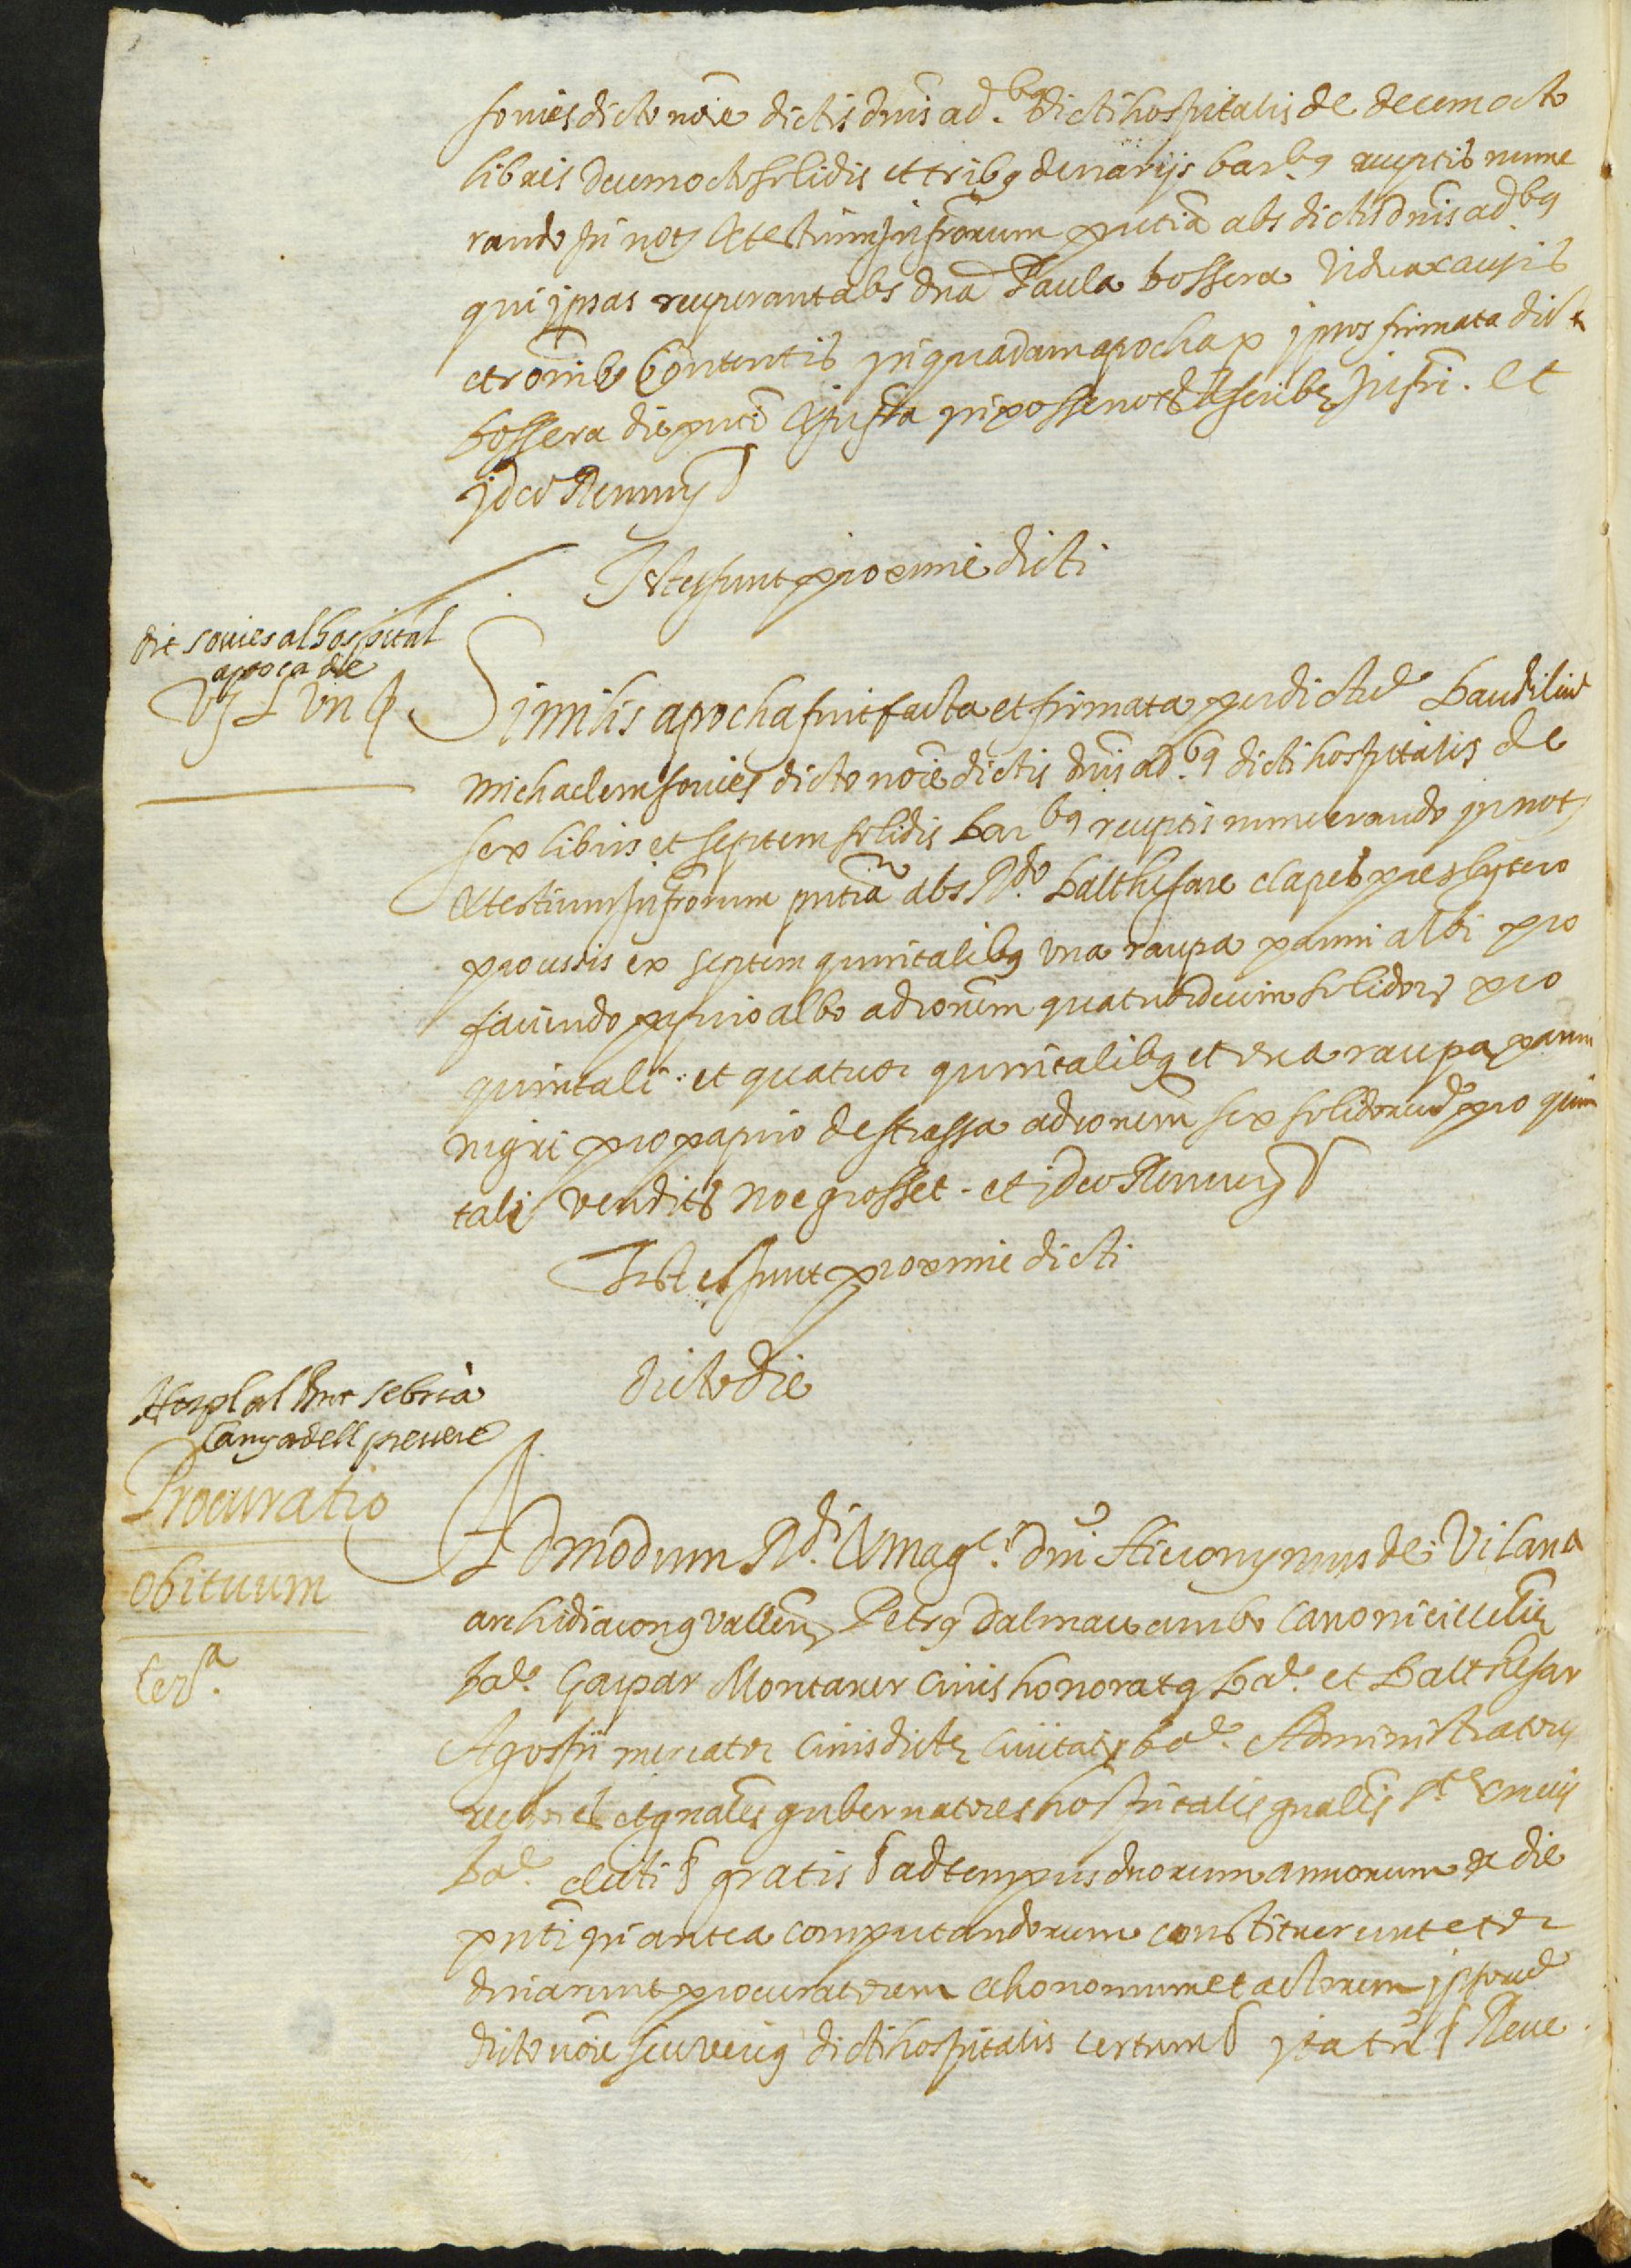 sovies dicto noie dictis dnis ad.bq dicti hospitalis de decem octo
libris decem octo solidis et tribq denarijs bar.bq receptis nume
rando in not et testium infrorum pntia abs dictis dnis adbq
qui ipsas recuperant abs dna Paula bossera vidua causis
et ronibq contentis in quadam apocha p ipsos firmata dicte
bossera die pnti et infra in posse not et scribe infri. et
ideo Renun
Testes sunt proxime dicti
dit sovies al hospital
apoca de
vj L vij s
Similis apocha fuit facta et firmata per dictum Baudilium
michaelem sovies dicto noie dictis dnis ad.bq dicti hospitalis de
sex libris et septem solidis bar.bq receptis numerando in not
et testium infrorum pntia abs Rdo. balthesare clapes presbytero
processis ex septem quintalibq una raupa panni albi pro
faciendo papiro albo ad ronem quatuordecim solidor pro
quintali et quatuor quintalibq et una raupa panni
nigri pro papiro de strassa ad ronem sex solidorum pro quin
tali venditis noe grosset. et ideo Renun
Testes sunt proxime dicti
dicto die
Hospl al Rnt sebria
Canyadell prevere
Procuratio
obituum
Cera.
Admodum Rdi. et magci. dni Hieronymus de Vilana
archidiaconq vallen Petrq dalmau ambo canonici
bae. Gaspar Montaner civis honoratq bae. et Balthesar
Agosti mercator civis dicte civitatis bae. Administratores
rectores et gnales gubernatores hospitalis gnalis ste crucis
bae. electi gratis ad tempus duorum annorum ex die
pnti in antea computandorum constituerunt et or
dinarunt procuratorem echonomum et actorem ipsorum
dicto noie seu verig dicti hospitalis certum ita tn Reve